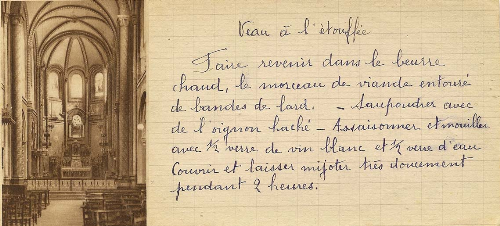 Veau à l'étouffée
Faire revenir dans le beurre
chaud, le morceau de viande entouré
de bandes de lard. - Saupoudrer avec
de l'oignon haché - Assaisonner et mouiller
avec ½ verre de vin blanc et ½ verre d'eau
Couvrir et laisser mijoter très doucement
pendant 2 heures.